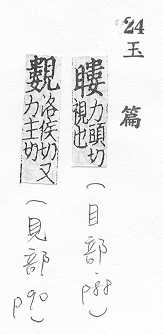 24
玉篇
瞜力頭切視也(目部 p88)
䙔洛侯切又力主切(見部 p90)